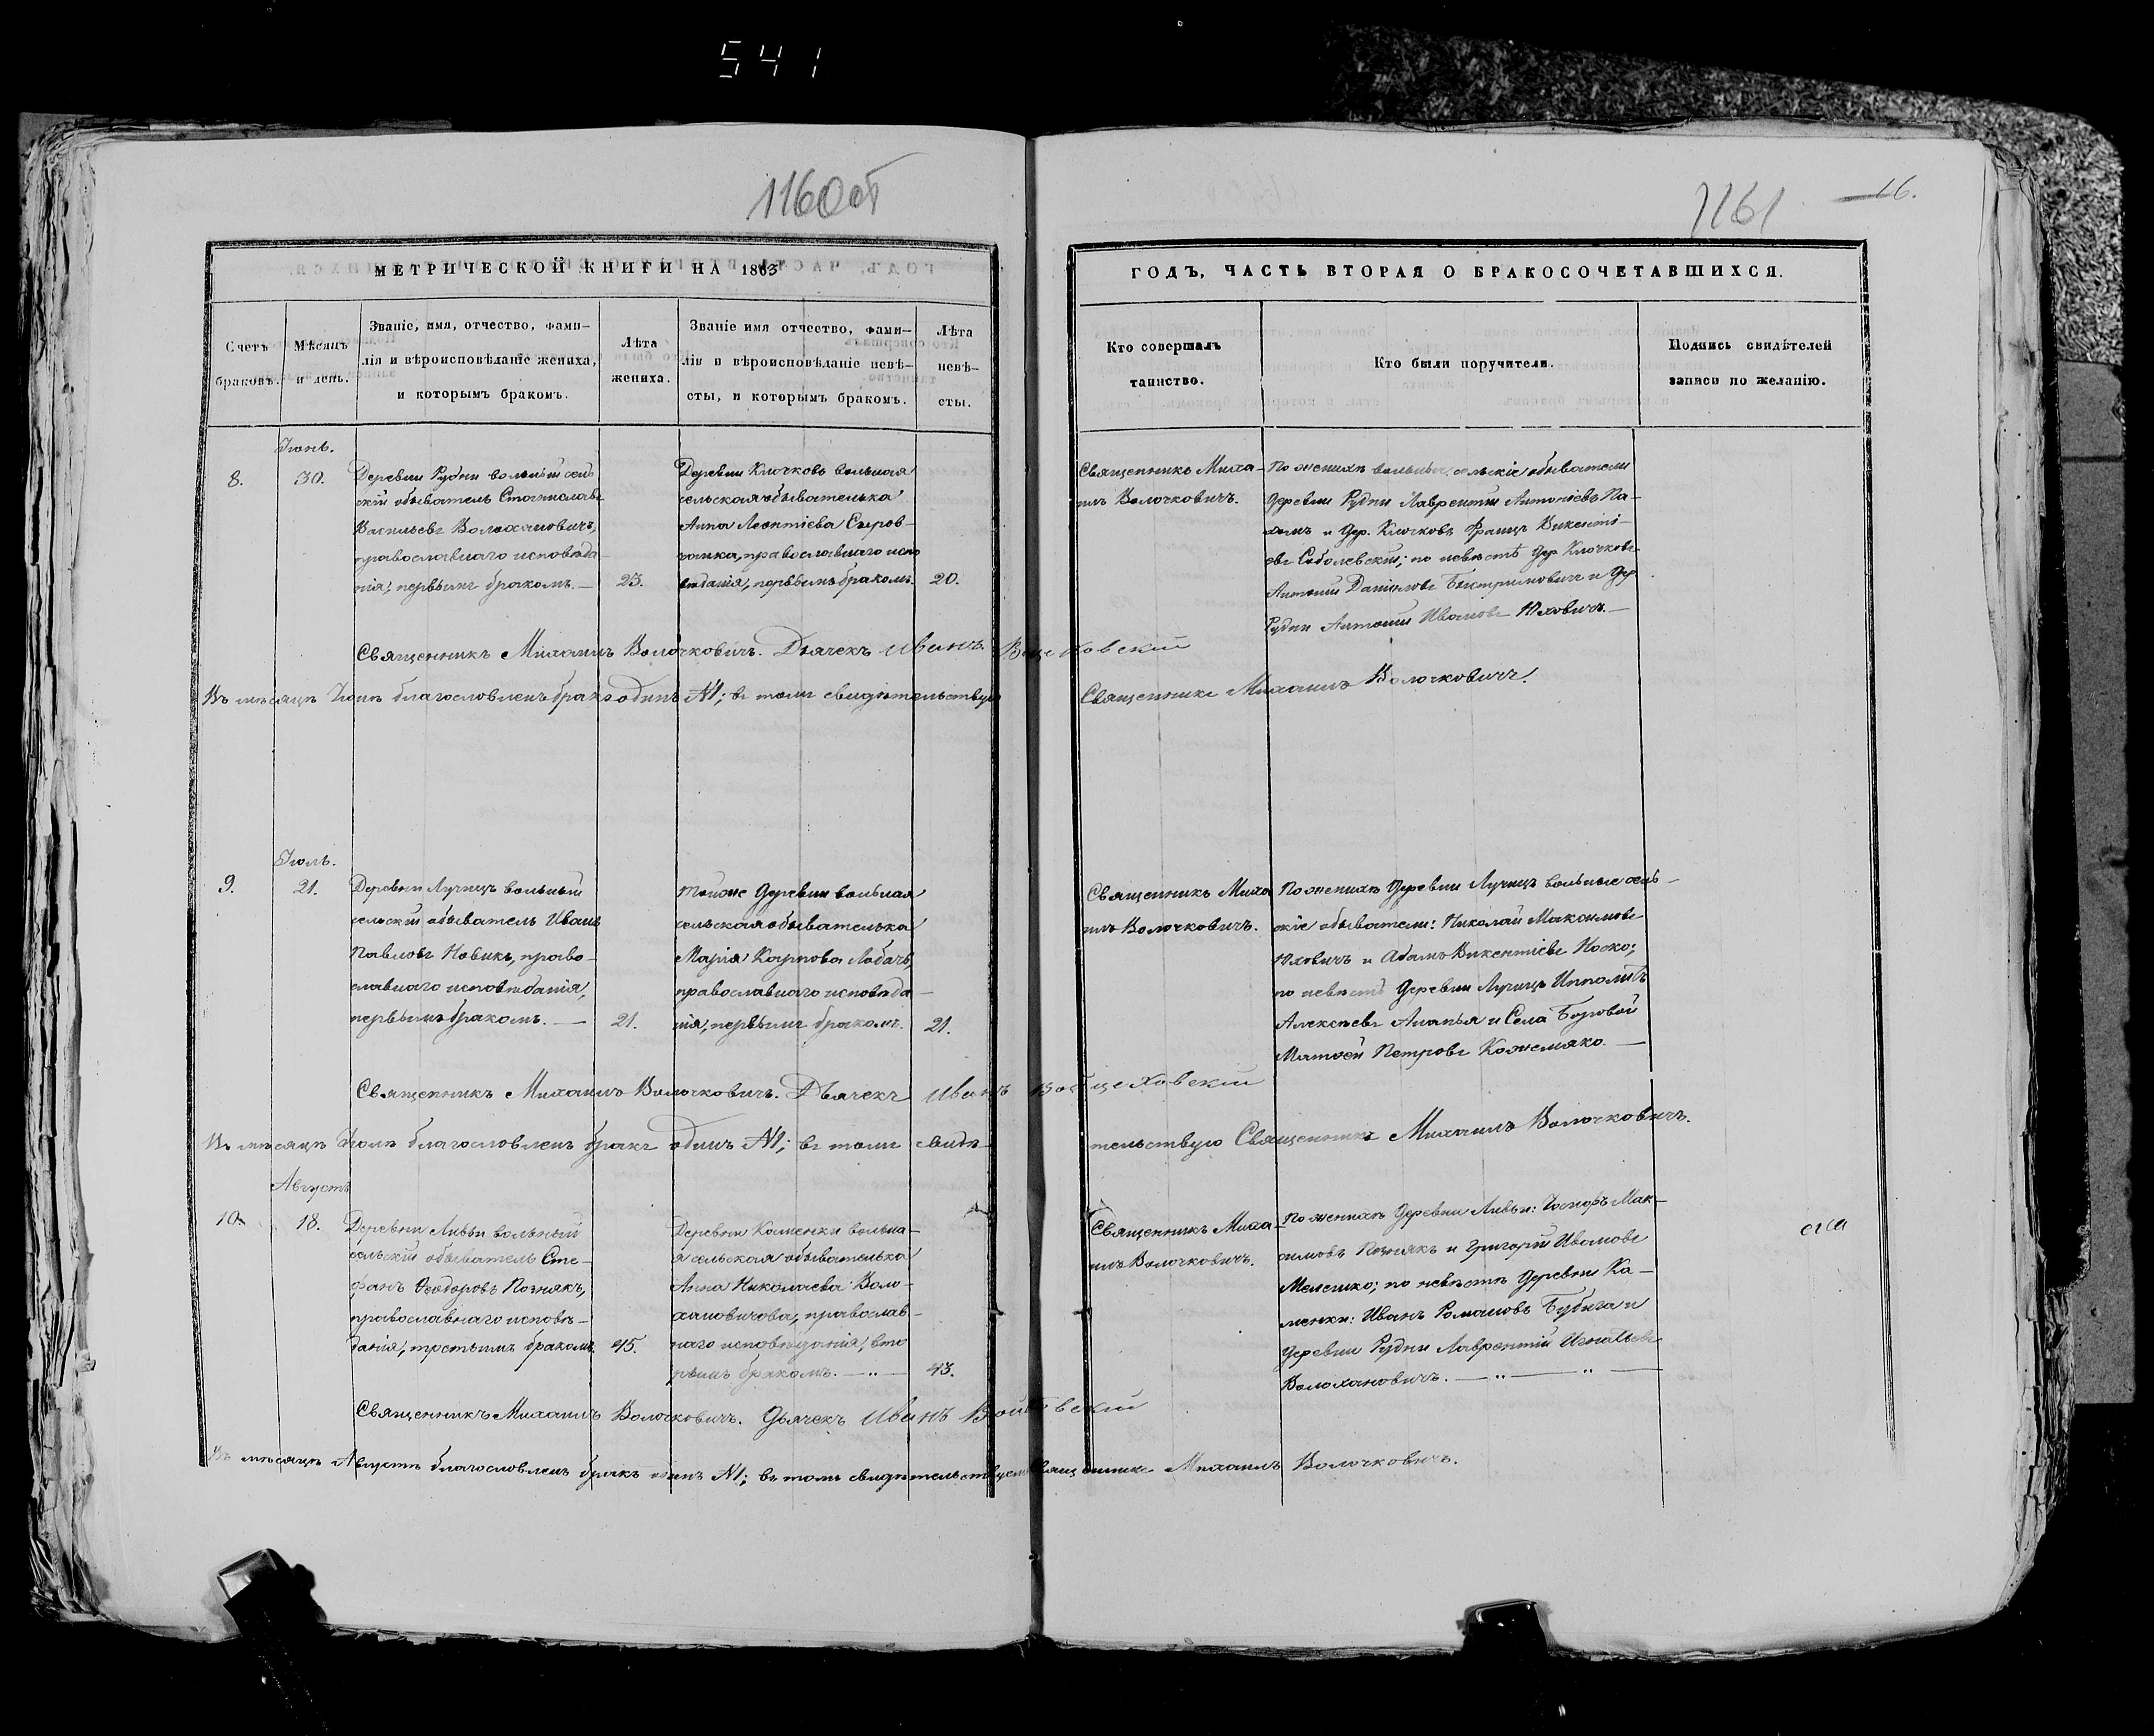 541
1160об
1161
16.
МЕТРИЧЕСКОЙ КНИГИ НА 1863
ГОДЪ, ЧАСТЬ ВТОРАЯ О БРАКОСОЧЕТАВШИХСЯ.
Счетъ браковъ.
Мѣсяцъ и день.
Званіе, имя, отчество, фами-
лія и вѣроисповѣданіе жениха,
и которымъ бракомъ.
Лѣта
жениха.
Званіе имя отчество, фами-
лія и вѣроисповѣданіе невѣ-
сты, и которымъ бракомъ.
Лѣта
невѣ-
сты.
Кто совершалъ
таинство.
Кто были поручители.
Подпись свидѣтелей
записи по желанію.
Іюнь.
8.
30.
Деревни Рудни вольный сель
скій обыватель Станиславъ
Васильевъ Волохановичъ,
православнаго исповѣда-
нія, первымъ бракомъ. —
23.
Деревни Клочковъ вольная
сельская обывателька
Анна Леонтіева Сыров-
православнаго испо
вѣданія, первымъ бракомъ.
20.
Священникъ Миха-
илъ Волочковичъ.
По женихѣ вольные сельскіе обыватели
деревни Рудни Лаврентій Антоніевъ Па-
и дер. Клочковъ Францъ Викенті-
евъ Соболевскій; по невѣстѣ дер. Клочковъ
Антоній Даніиловъ и дер.
Рудни Антоній Ивановъ Юховичъ. —
Священникъ Михаилъ Волочковичъ. Дьячекъ Иванъ
Въ мѣсяцѣ Іюнѣ благословленъ бракъ одинъ №1; въ томъ свидѣтельствую Священникъ Михаилъ Волочковичъ.
Іюль.
9.
21.
Деревни Лучицъ вольный
сельскій обыватель Иванъ
Павловъ Новикъ, право-
славнаго исповѣданія,
первымъ бракомъ. —
21.
Тойже деревни вольная
сельская обывателька
Марія Карпова Лобачъ,
православнаго исповѣда-
нія, первымъ бракомъ.
21.
Священникъ Миха
илъ Волочковичъ.
По женихѣ деревни Лучицъ вольные сель-
скіе обыватели: Николай Максимовъ
Юховичъ и Адамъ Викентіевъ Носко;
по невѣстѣ деревни Лучицъ Ипполитъ
Алексѣевъ Ананья и Села Боровой
Матѳей Петровъ Кожемяко. —
Священникъ Михаилъ Волочковичъ. Дьячекъ Иванъ Войцеховскій
Въ мѣсяцѣ Іюлѣ благословленъ бракъ одинъ №1; въ томъ свидѣ-
тельствую Священникъ Михаилъ Волочковичъ.
Августъ
10.
18.
Деревни Ливьи вольный
сельскій обыватель Сте-
фанъ Ѳеодоровъ Познякъ,
православнаго исповѣ-
данія, третьимъ бракомъ.
45.
Деревни Каменки вольна-
я сельская обывателька
Анна Николаева Воло-
хановичова, православ-
наго исповѣданія, вто
рымъ бракомъ. — „ —
43.
Священникъ Миха-
илъ Волочковичъ.
По женихѣ деревни Ливьи: Іосифъ Мак-
симовъ Познякъ и Григорій Ивановъ
Мелешко; по невѣстѣ деревни Ка-
менки: Иванъ Романовъ Бубига и
деревни Рудни Лаврентій Игнатьевъ
Волохановичъ. — „ — „ —
Священникъ Михаилъ Волочковичъ. Дьячекъ Иванъ
Въ мѣсяцѣ Августѣ благословленъ бракъ одинъ №1; въ томъ свидѣтельствую Священникъ Михаилъ Волочковичъ.